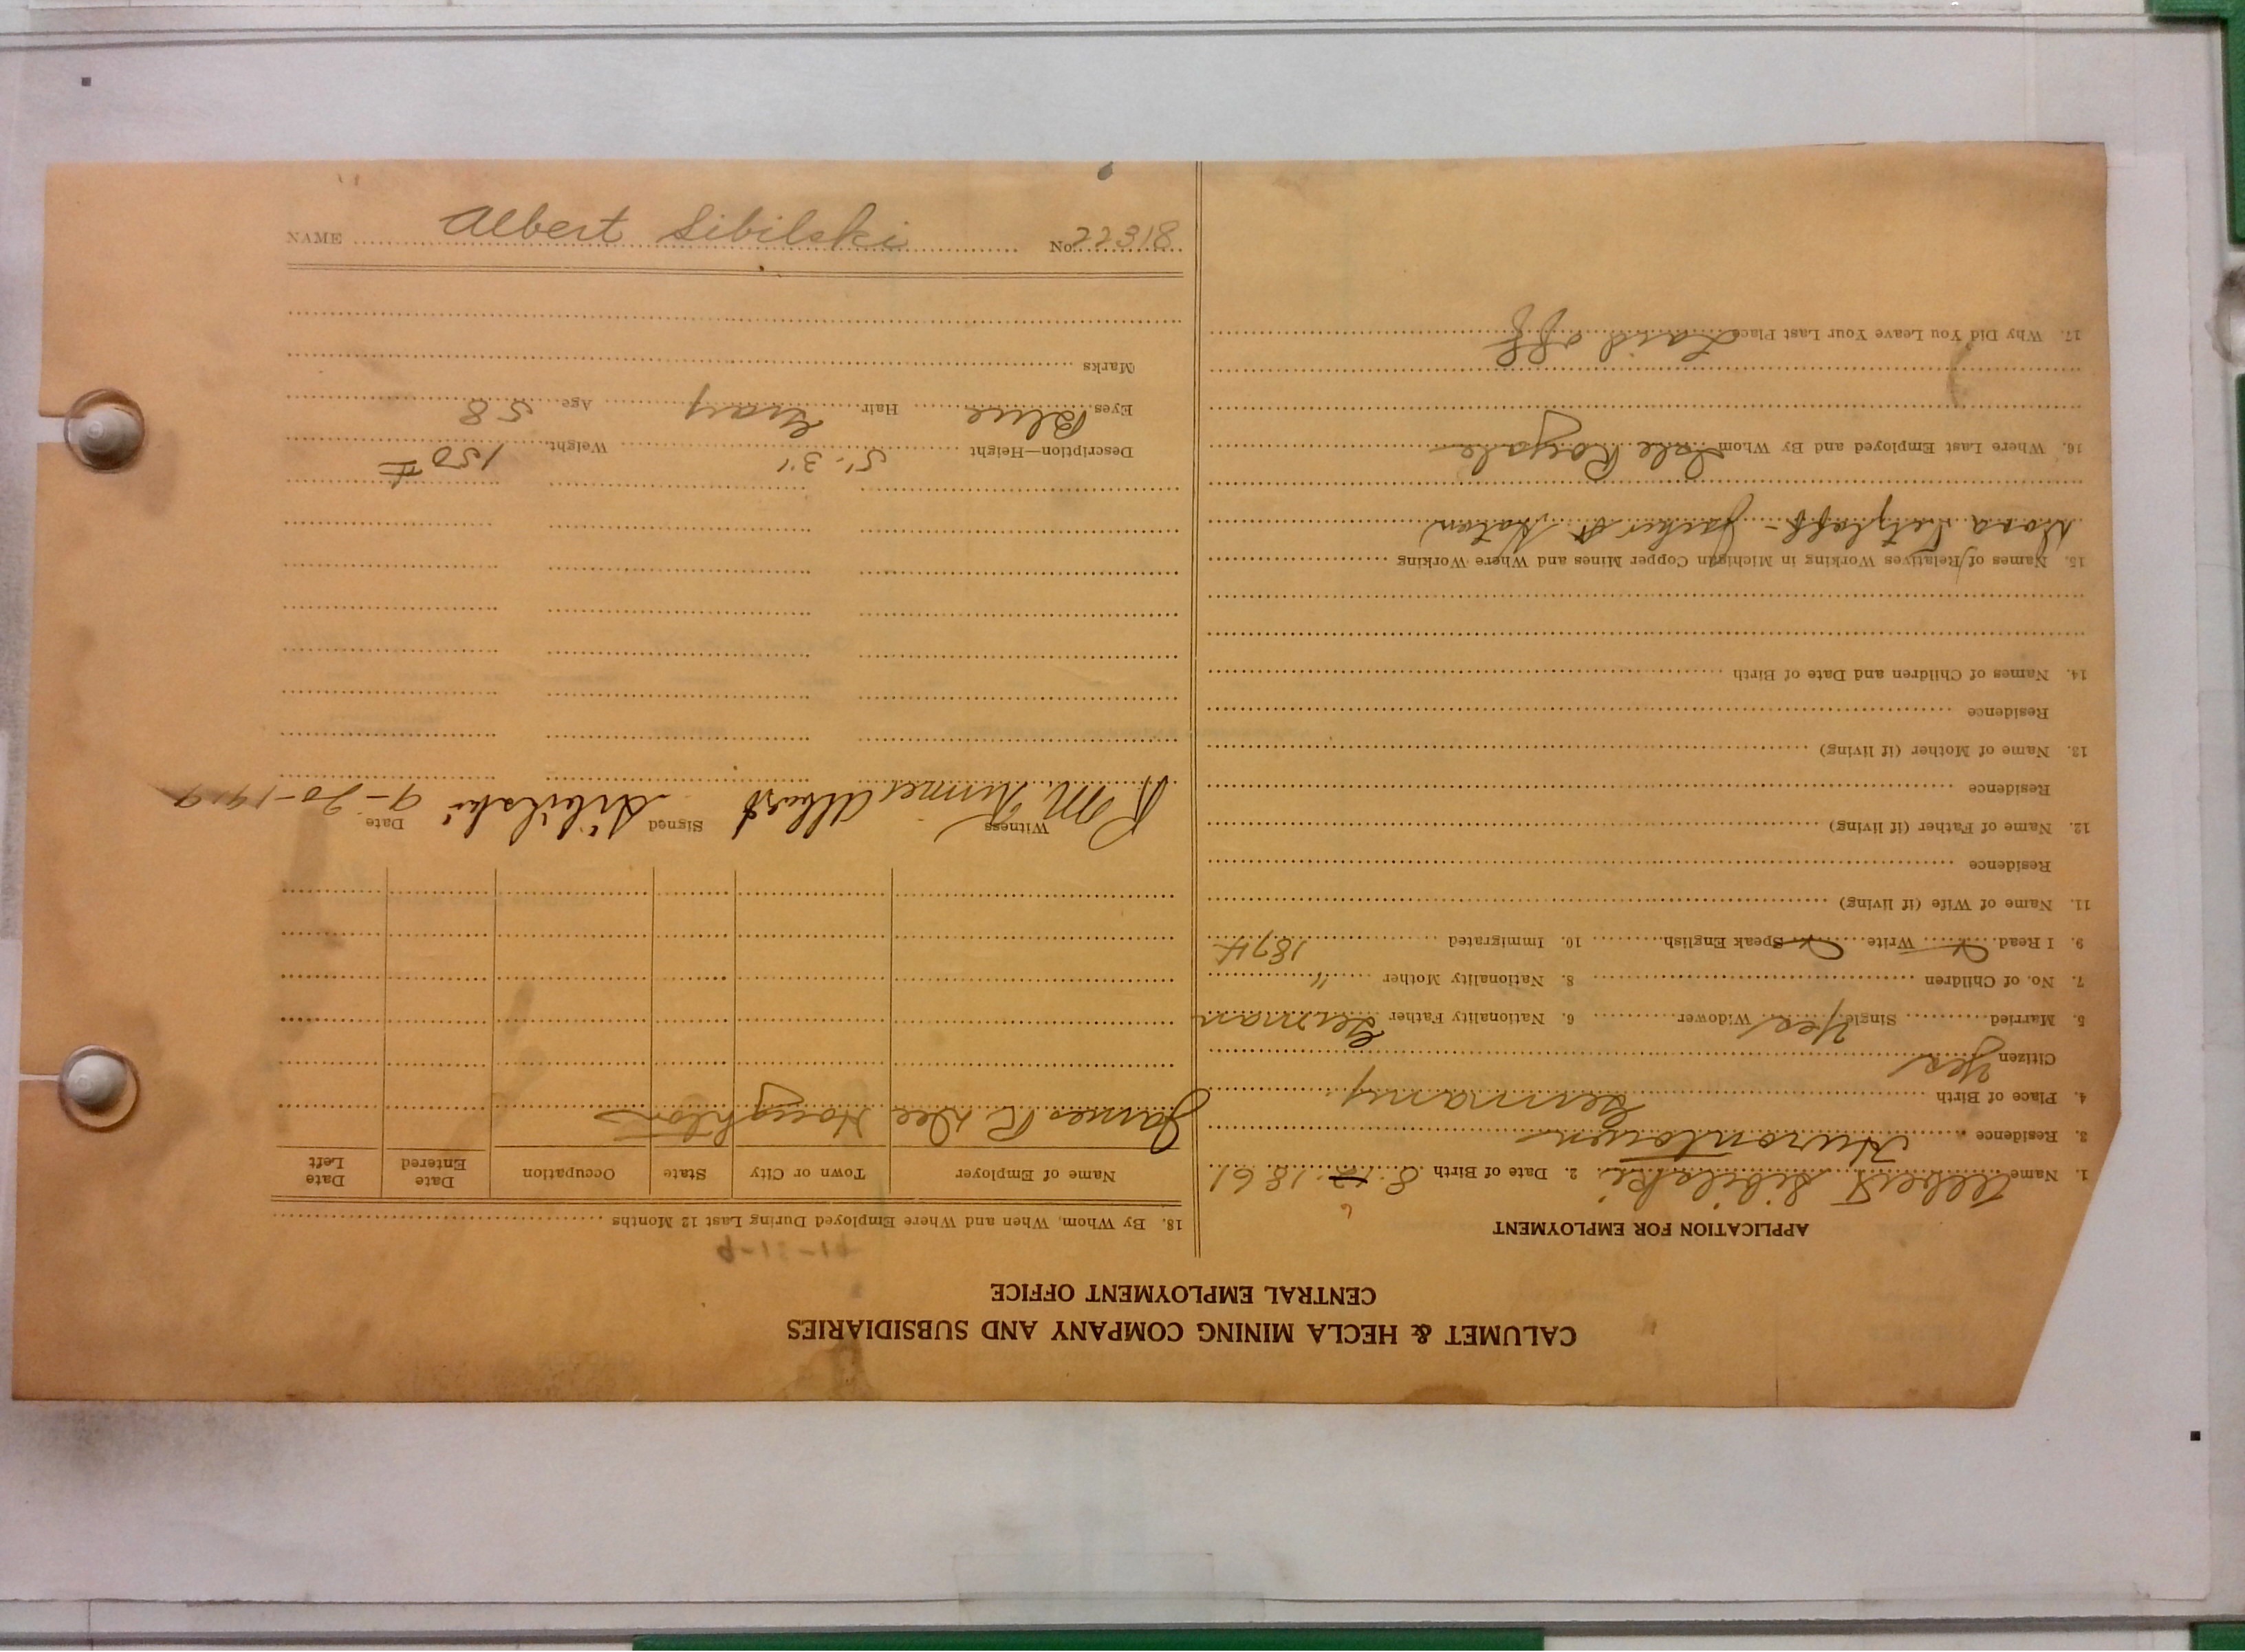 CALUMET & HECLA MINING COMPANY AND SUBSIDIARIES
CENTRAL EMPLOYMENT OFFICE
APPLICATION FOR EMPLOYMENT
1. Name Albert Sibilski 2. Date of Birth 8 1861
6
3. Residence Hurontown
4. Place of Birth Germany
Citizen Yes
5. Married Single Yes Widower 6. Nationality Father German
7. No. of Children 8. Nationality Mother "
9. I Read Write Speak English 10. Immigrated 1874
11. Name of Wife (if living)
Residence
12. Name of Father (if living)
Residence
13. Name of Mother (if living)
Residence
14. Names of Children and Date of Birth
15. Names of Relatives Working in Michigan Copper Mines and Where Working
16. Where Last Employed and By Whom Isle Royale
17. Why Did You Leave Your Last Place Laid off
18. By Whom, When and Where Employed During Last 12 Months
Name of Employer Town or City State Occupation Date Entered Date Left
James R Dee Houghton
Witness Signed Albert Sibilski Date 9-20-1919
Description—Height 5'-3" Weight 150 #
Eyes Blue Hair Gray Age 58
Marks
NAME Albert Sibilski No. 22318